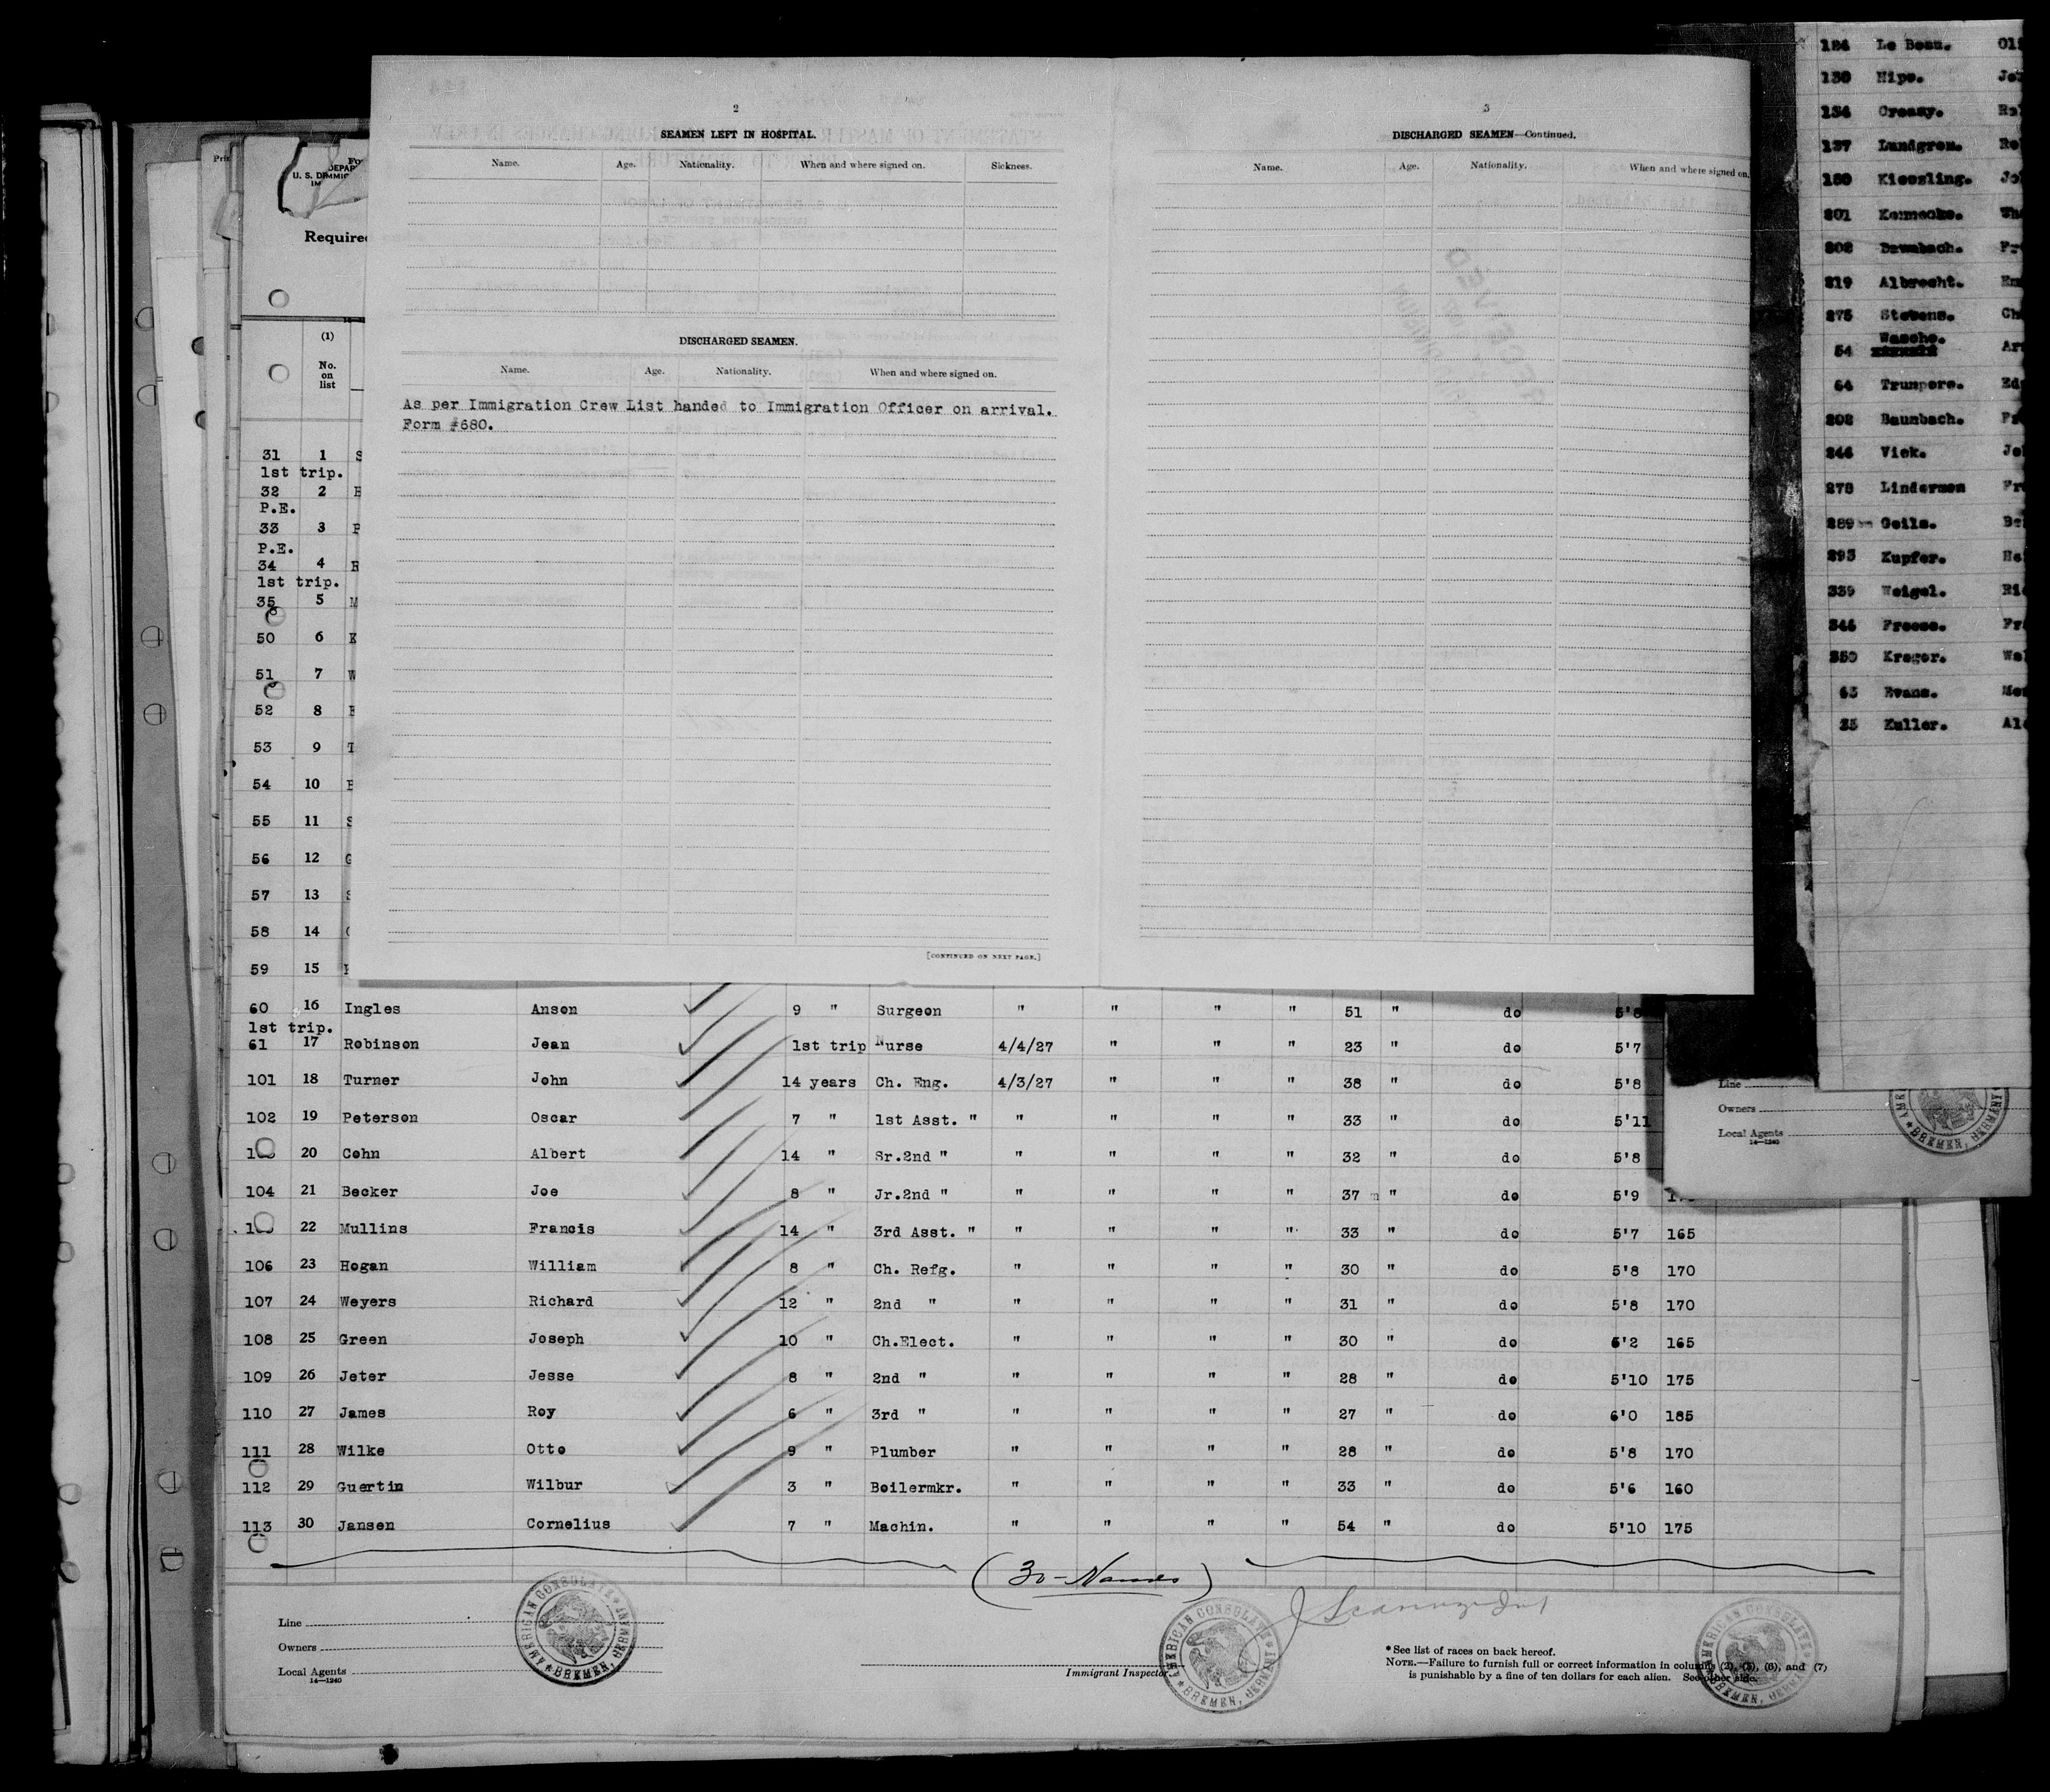 2
SEAMEN LEFT IN HOSPITAL.
Name. Age. Nationality. When and where signed on. Sickness.
DISCHARGED SEAMEN.
Name. Age. Nationality. When and where signed on.
As per Immigration Crew List handed to Immigration Officer on arrival.
Form #680.
[CONTINUED ON NEXT PAGE.]
3
DISCHARGED SEAMEN—Continued.
Name. Age. Nationality. When and where signed on.
Required
(1)
No.
on
list
31 1 S
1st trip.
32 2
P.E.
33 3
P.E.
34 4
1st trip.
35 5 M
50 6 K
51 7 W
52 8
53 9 T
54 10
55 11 S
56 12 G
57 13 S
58 14
59 15
60 16 Ingles Anson 9 " Surgeon " " " " 51 " do 5'8
1st trip.
61 17 Robinson Jean 1st trip Nurse 4/4/27 " " " 23 " do 5'7
101 18 Turner John 14 years Ch. Eng. 4/3/27 " " " 38 " do 5'8
102 19 Peterson Oscar 7 " 1st Asst. " " " " " 33 " do 5'11
20 Cohn Albert 14 " Sr.2nd " " " " " 32 " do 5'8
104 21 Becker Joe 8 " Jr.2nd " " " " " 37 " do 5'9
22 Mullins Francis 14 " 3rd Asst. " " " " " 33 " do 5'7 165
106 23 Hogan William 8 " Ch. Refg. " " " " 30 " do 5'8 170
107 24 Weyers Richard 12 " 2nd " " " " " 31 " do 5'8 170
108 25 Green Joseph 10 " Ch.Elect. " " " " 30 " do 6'2 165
109 26 Jeter Jesse 8 " 2nd " " " " " 28 " do 5'10 175
110 27 James Roy 6 " 3rd " " " " " 27 " do 6'0 185
111 28 Wilke Otto 9 " Plumber " " " " 28 " do 5'8 170
112 29 Guertin Wilbur 3 " Boilermkr. " " " " 33 " do 5'6 160
113 30 Jansen Cornelius 7 " Machin. " " " " 54 " do 5'10 175
(30-Names)
Line
Owners
Local Agents
14—1240
AMERICAN CONSULATE BREMEN, GERMANY
Immigrant Inspector.
AMERICAN CONSULATE BREMEN, GERMANY
*See list of races on back hereof.
NOTE.—Failure to furnish full or correct information in columns (2), (5), (6), and (7)
is punishable by a fine of ten dollars for each alien. See other side.
AMERICAN CONSULATE BREMEN, GERMANY
Le Beau.
Hipe.
134 Creasy.
137 Lundgren.
Kiessling.
201 Kennecke.
202
219 Albrecht.
275 Stevens.
Wasche.
54
64 Trumpore.
202 Baumbach.
246 Vick.
278 Linderman
289 Geils.
293 Kupfer.
339 Weigel.
346 Freese.
350 Kreger.
63 Evans.
35 Kuller.
Line
Owners
Local Agents
14—1240
BREMEN, GERMANY